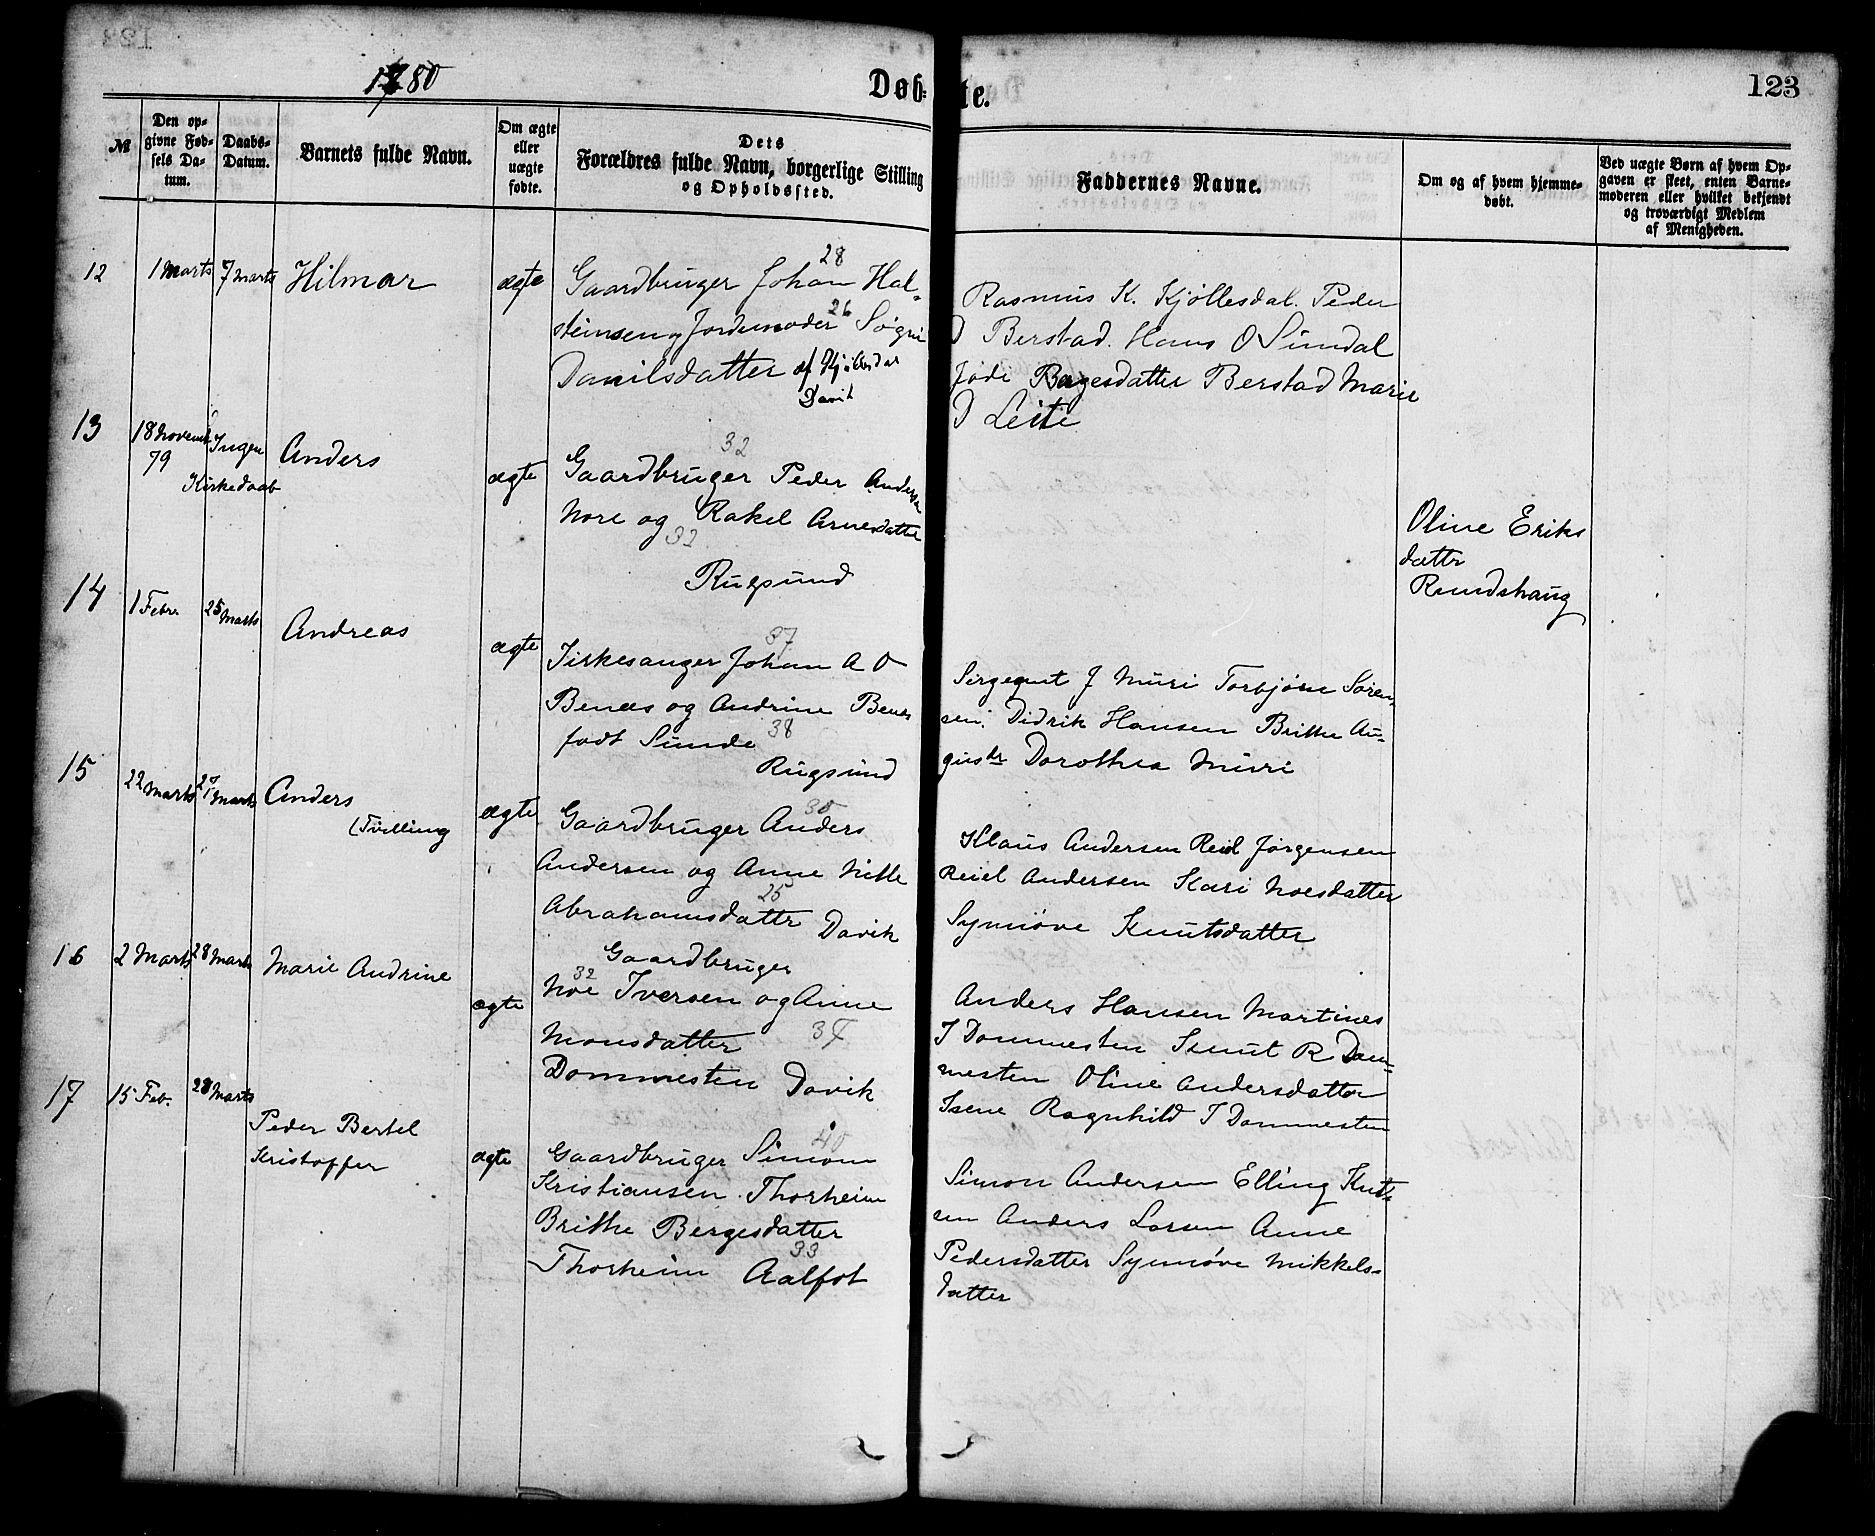 1880
Døb-te.
123
№
Den op-
givne Fød-
sels Da-
tum.
Daabs-
Datum.
Barnets fulde Navn.
Om ægte
eller
uægte
fødte.
Dets
Forældres fulde Navn, borgerlige Stilling
og Opholdssted.
Faddernes Navne.
Om og af hvem hjemme-
døbt.
Ved uægte Børn af hvem Op-
gaven er skeet, enten Barne-
moderen eller hvilket bekjendt
og troværdigt Medlem
af Menigheden.
12
1 Marts
7 Marts
Hilmar
ægte
28
Gaardbruger Johan Hal-
26
steinsen og Jordemoder Sigrie
Danilsdatter af
Davik
Rasmus K. Kjöllesdal. Peder
D Berstad. Hans O Sundal
Børgesdatter Berstad Marie
D Leite
13
18 Novemb
79
Ingen
Kirkedaab
Anders
ægte
32
Gaardbruger Peder Andersen
Nore og Rakel Arnesdatter
32
Rugsund
Oline Eriks
datter
Rundehaug
14
1 Febr.
25 Marts
Andreas
ægte
37
Kirkesanger Johan A O
Benæs og Andrine Benæs
født Sunde 38
Rugsund
Sergeant J Muri Torbjörn Sören-
sen. Didrik Hansen Brithe Au-
gusta Dorothea Muri
15
22 Marts
27 Marts
Anders
(Tvilling
ægte
30
Gaardbruger Anders
Andersen og Anne Nille
25
Abrahamsdattr Davik
Klaus Andersen Reiel Jörgensen
Reiel Andersen Kari Noesdatter
Synnöve Knutsdatter
16
2 Marts
28 Marts
Marie Andrine
ægte
Gaardbruger
32
Noe Iversen og Anne
Monsdatter 34
Dommesten Davik
Anders Hansen Martines
J Dommesten Knut R Dom-
mesten Oline Andersdatter
Isene Ragnhild J Dommesten
17
15 Feb.
28 Marts
Peder Bertel
Kristoffer
ægte
40
Gaardbruger Simon
Kristiansen Thorheim
Brithe Bergesdatter
33
Thorheim Aalfot
Simon Andersen Elling Knut-
sen Anders Larsen Anne
Pedersdatter Synnöve Mikkels-
datter